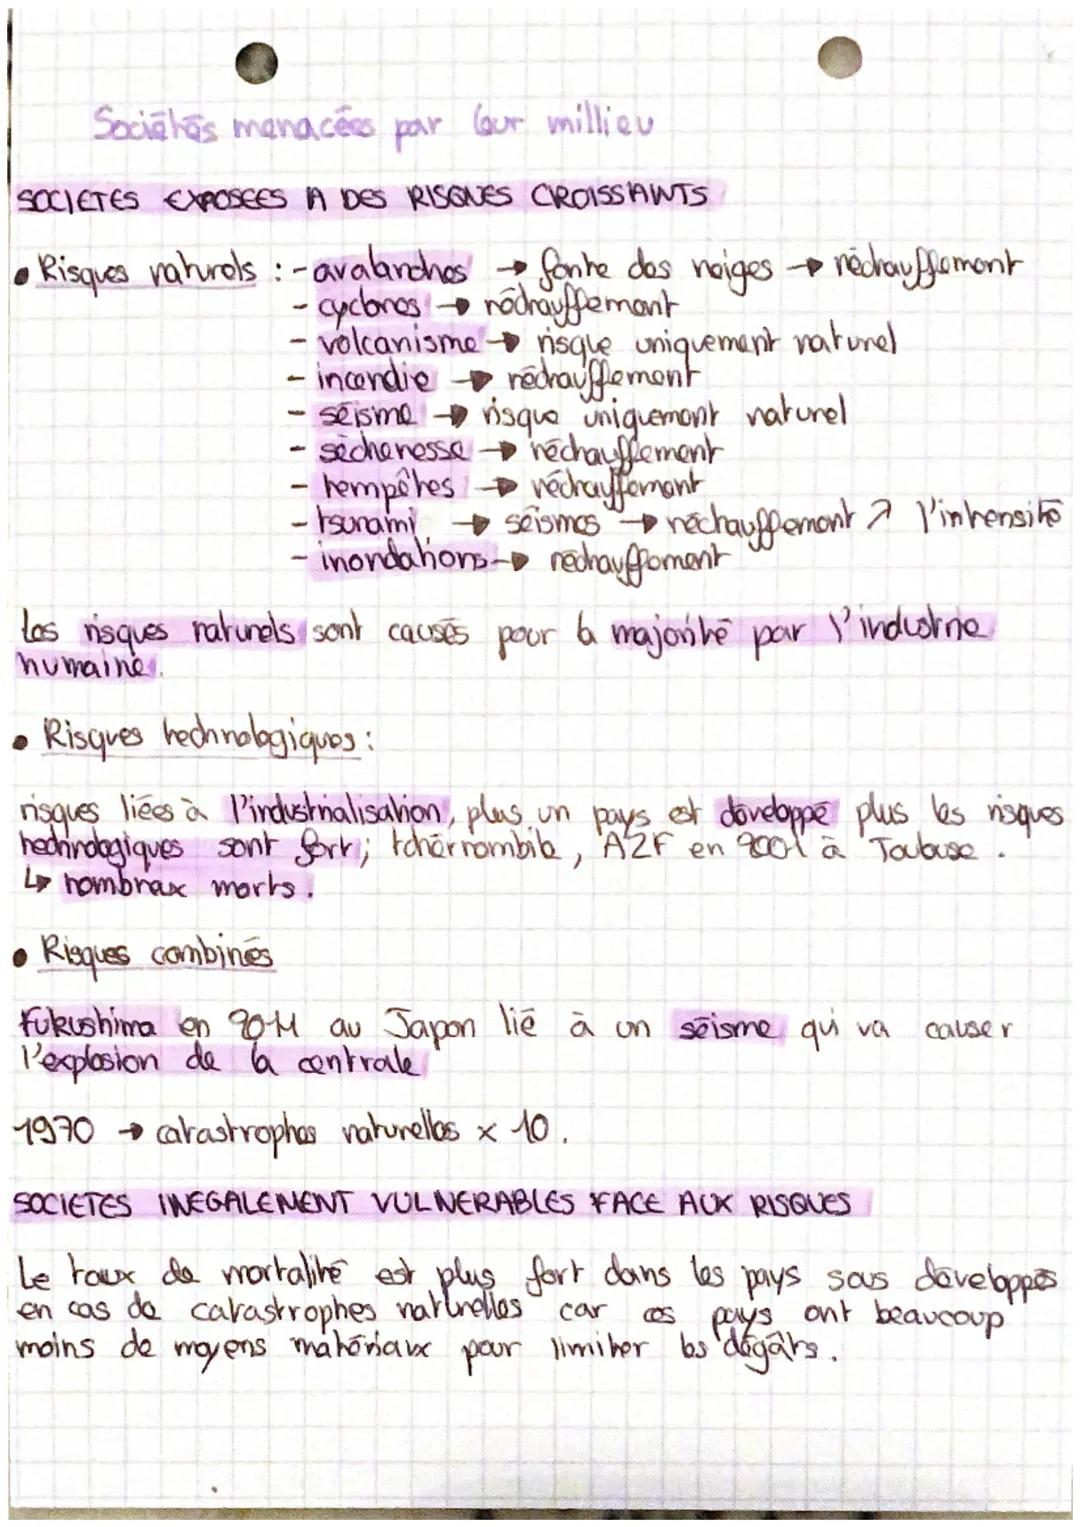 Sociétés menacées par leur millieu
SOCIETES EXPOSEES A DES RISQUES CROISSANTS
• Risques naturels : - avalanches → fonte des neiges → réchauffement
- cyclones → réchauffement
- volcanisme → risque uniquement naturel
- incendie → réchauffement
- séisme → risque uniquement naturel
- sècheresse → réchauffement
- tempêtes → réchauffement
- tsunami → séismes → réchauffement ↗ l'intensité
- inondations → réchauffement
Les risques naturels sont causés pour la majorité par l'industrie
humaine.
• Risques technologiques :
risques liées à l'industrialisation, plus un pays est développé plus les risques
technologiques sont fort ; tchérnombile, AZF en 2001 à Toulouse.
↳ nombreux morts.
• Risques combinés
Fukushima en 2011 au Japon lié à un séisme qui va causer
l'explosion de la centrale
1970 → catastrophes naturelles x 10.
SOCIETES INEGALEMENT VULNERABLES FACE AUX RISQUES
Le taux de mortalité est plus fort dans les pays sous développés
en cas de catastrophes naturelles car ces pays ont beaucoup
moins de moyens matériaux pour limiter les dégâts.